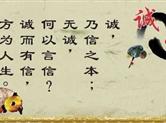 诚，
乃信之本；
无诚，
何以言信？
诚而有信，
方为人生。
诚